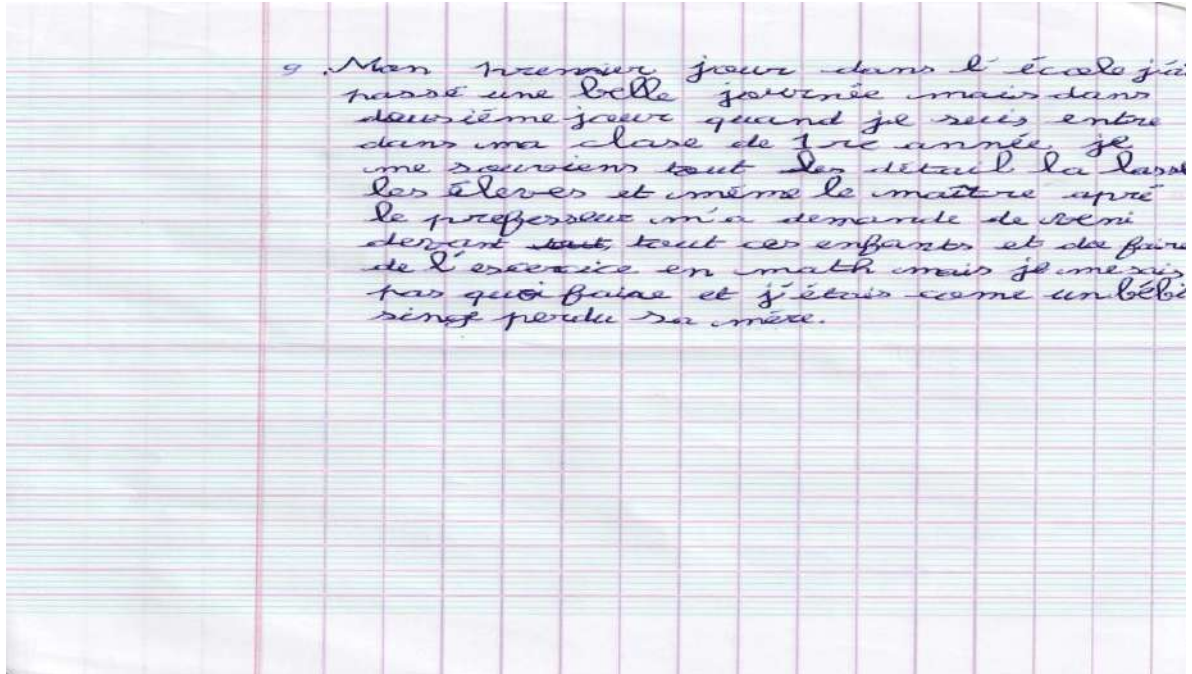 9. Mon premier jour dans l'école j'ai
passé une belle journée mais dans
deusiéme jour quand je suis entre
dans ma clase de 1re année, je
me souviens tout les détail la lasse
les éleves et méme le maître apré
le professeur m'a demande de veni
devant tout tout ces enfants et de faire
de l'escercice en math mais je me sais
pas quoi faire et j'étais come un bébé
singe perdu sa mére.